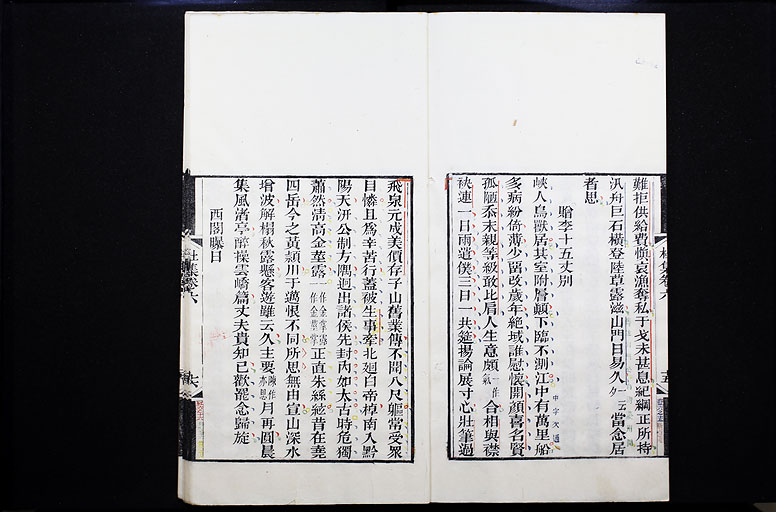 難拒供給費慎哀漁奪私干戈未甚息紀綱正所持
汎舟巨石橫登陸草露滋山門日易久一云當念居
者思
贈李十五丈別
峽人鳥獸居其室附層顛下臨不測江中有萬里船
多病紛倚薄少留改歲年絕域誰慰懷開顏喜名賢
孤陋忝末親等級敢比肩人生意頗一作氣合相與襟
袂連一日兩遣僕三日一共筵揚論展寸心壯筆過
飛泉元成美價存子山舊業傳不聞八尺軀常受衆
目憐且爲辛苦行蓋被生事牽北迴白帝棹南入黔
陽天汧公制方隅迥出諸侯先封內如太古時危獨
蕭然清高金莖露一作金掌露一作金莖掌正直朱絲絃昔在堯
四岳今之黃潁川于邁恨不同所思無由宣山深水
增波解榻秋露懸客遊雖云久主要陳作亦思月再圓晨
集風渚亭醉操雲嶠篇丈夫貴知己歡罷念歸旋
西閣曝日
杜集卷六
五
杜集卷六